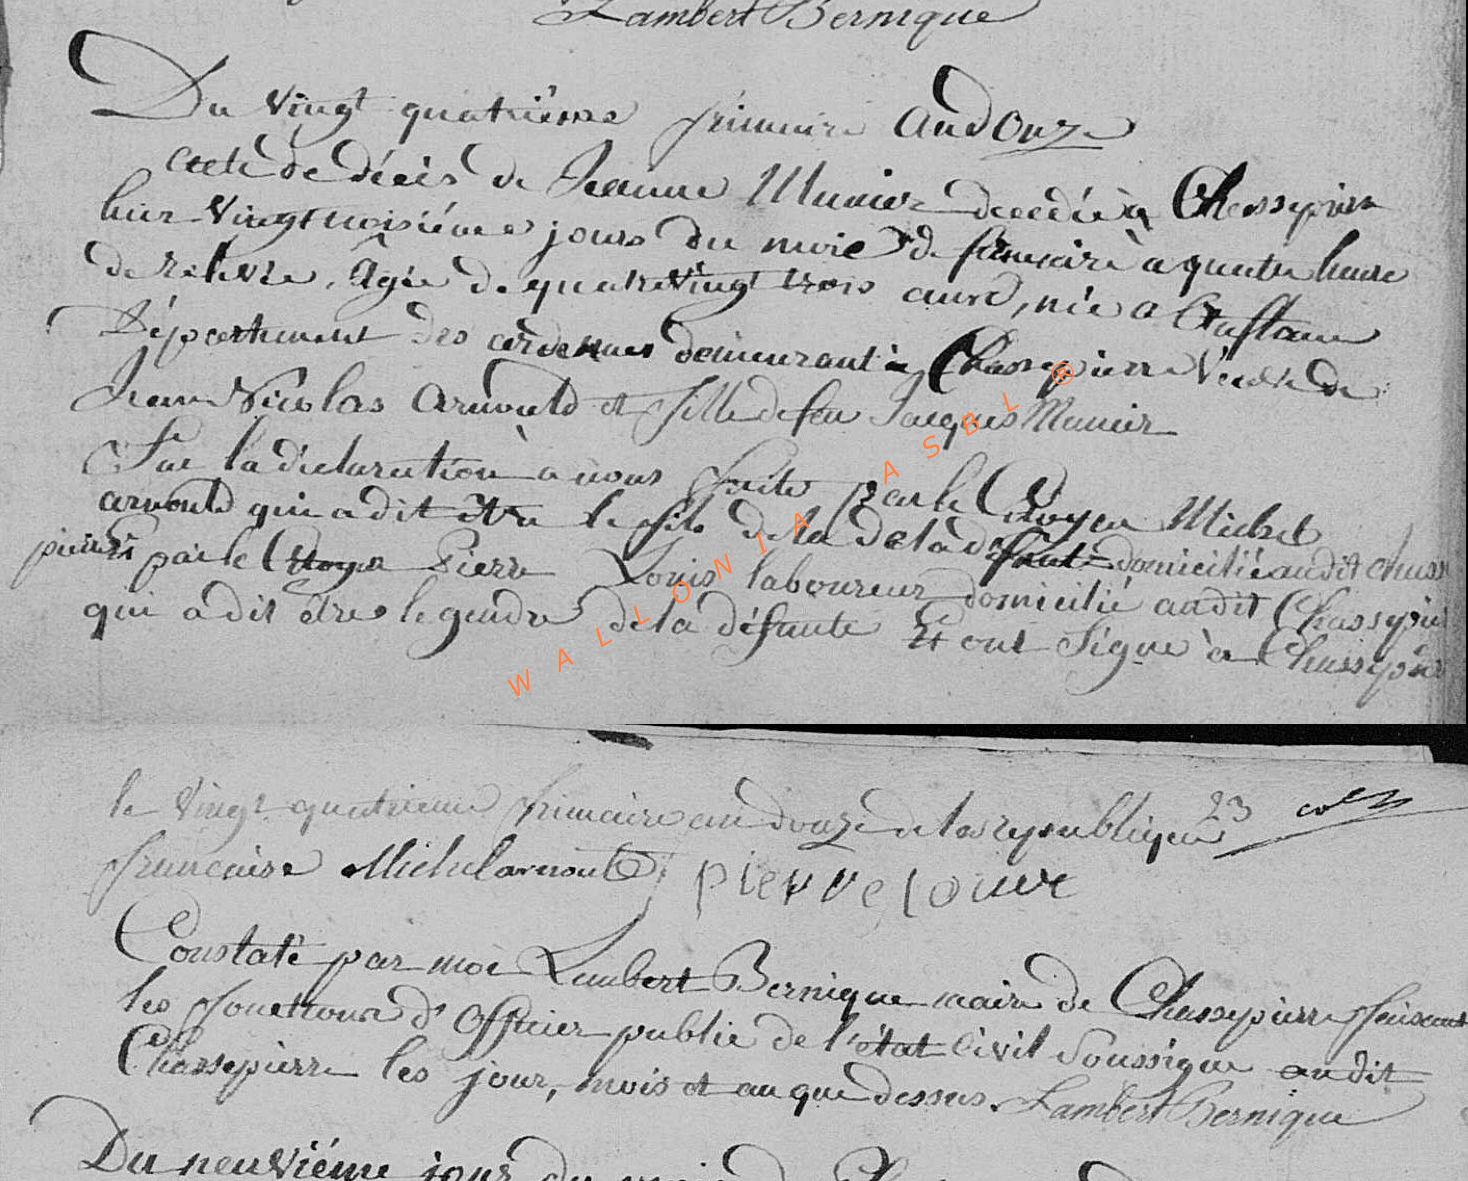 Lambert Bernique
Du vingt quatrième frimaire an douze
acte de décès de Jeanne Munier decedée à Chassepierre
hier vingt troisiéme jours du mois de frimaire à quatre heure
de relevée, âgée de quatre vingt trois ans, née a
Département des ardennes demeurant à Chassepierre Veuve de
Jean Nicolas arnould et fille de feu Jacques Munier
Sur la déclaration à nous faite par le Citoyen Michel
arnould qui a dit être le fils de la de la défunte domicilié audit chasse
pierre et par le Citoyen Pierre Louis laboureur domicilié audit Chassepierre
qui a dit être le gendre de la défunte Et ont Signé à Chassepierre
WALLONIA ASBL ®
le vingt quatrieme frimaire an douze de la republique 23
francaise Michel arnould pierre louis
Constaté par moi Lambert Bernique maire de Chassepierre faisant
les fonctions d'Officier public de l'état Civil Soussigné audit
Chassepierre les jour, mois et an que dessus. Lambert Bernique
Du neuviéme jour du mois de